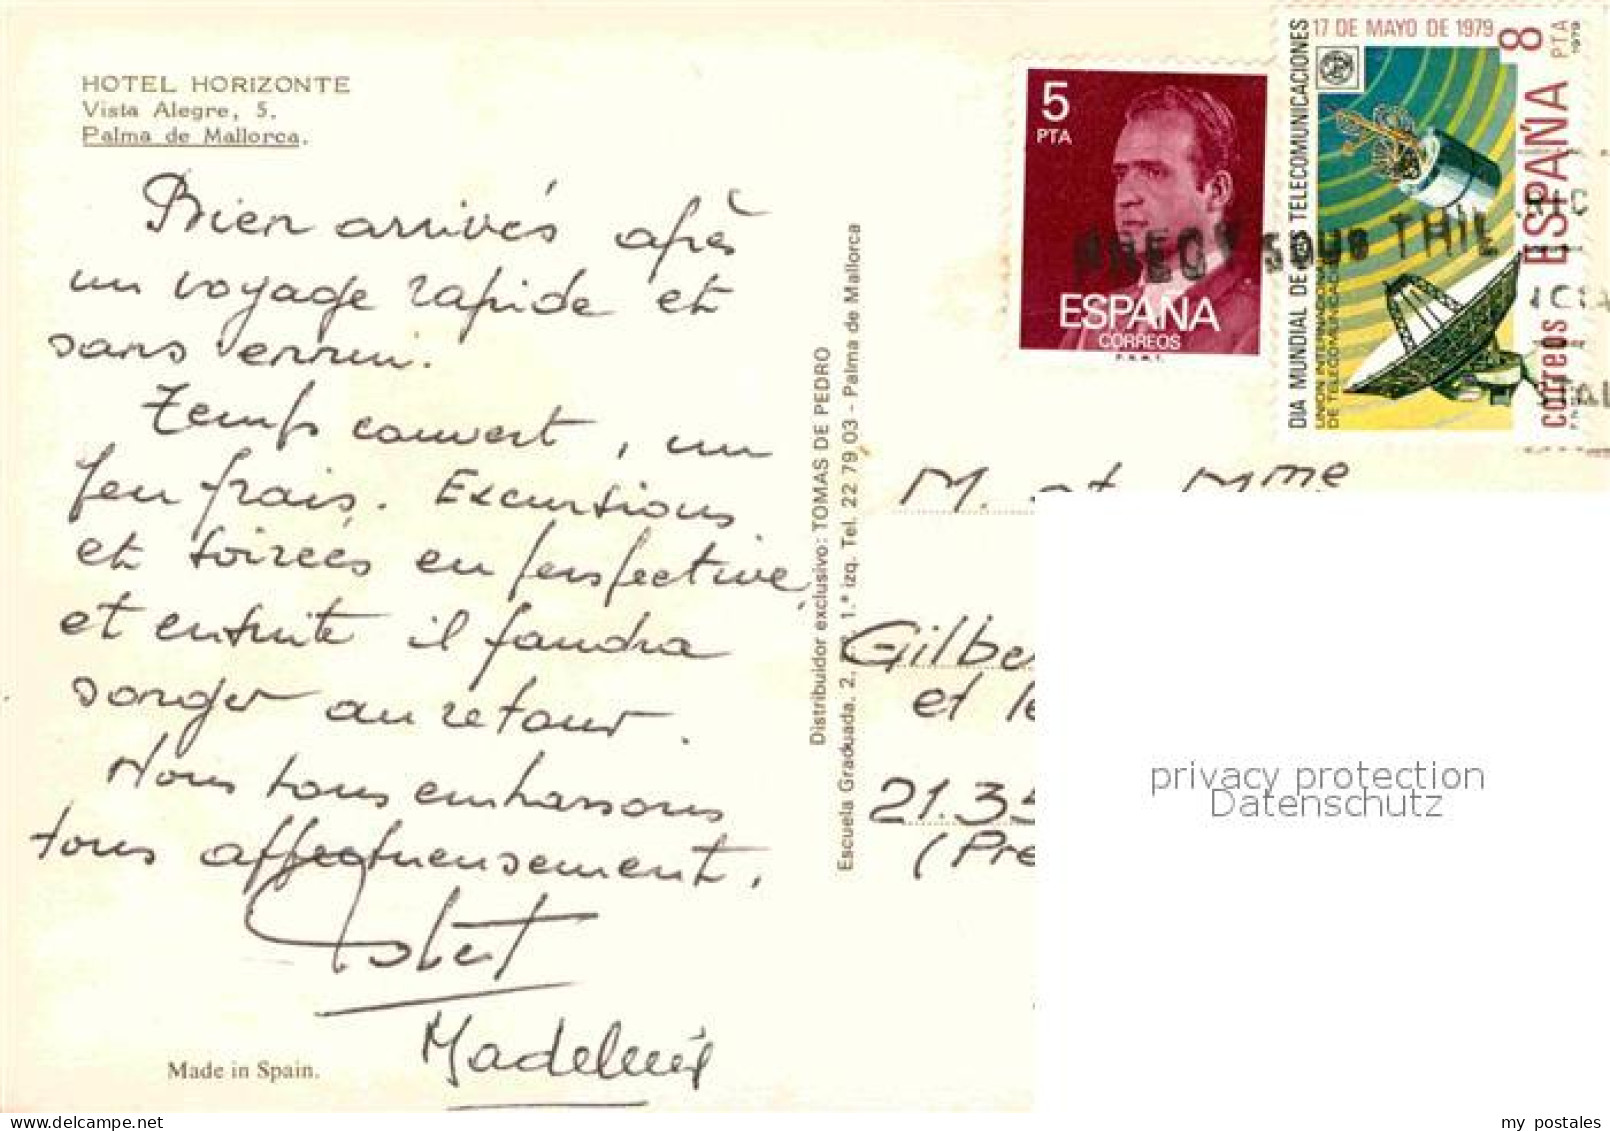 HOTEL HORIZONTE
Vista Alegre, 5.
Palma de Mallorca.
Bien arrivés après
un voyage rapide et
sans ennui.
Temps couvert, un
peu frais. Excursions
et soirées en perspective,
et ensuite il faudra
songer au retour.
Nous vous embrassons
tous affectueusement.
Robert
Madeleine
Made in Spain.
Distribuidor exclusivo: TOMAS DE PEDRO
Escuela Graduada, 2, 1.ª izq. Tel. 22 79 03 - Palma de Mallorca
5
PTA
ESPAÑA
CORREOS
F.N.M.T.
17 DE MAYO DE 1979
DIA MUNDIAL DE LAS TELECOMUNICACIONES
UNION INTERNACIONAL
DE TELECOMUNICACIONES
8
PTA
1979
correos ESPAÑA
PRECY SOUS THIL
M. et Mme
Gilbe
et le
21.35
(Pré
privacy protection
Datenschutz
my postales